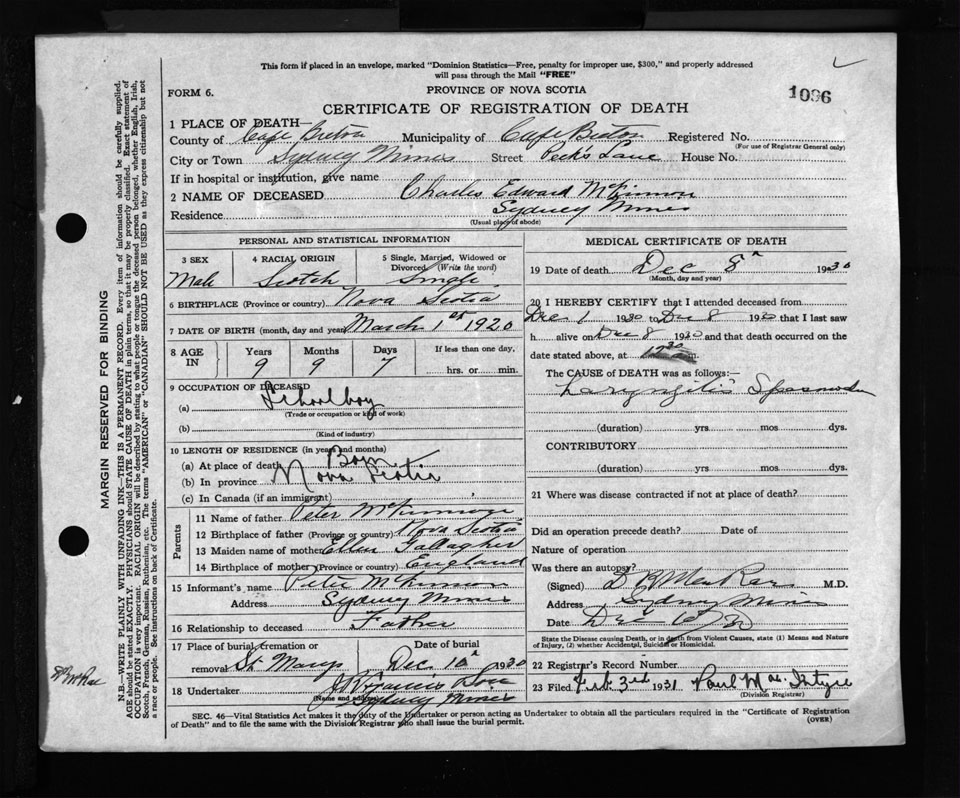 This form if placed in an envelope, marked "Dominion Statistics—Free, penalty for improper use, $300," and properly addressed
will pass through the Mail "FREE"
FORM 6.
PROVINCE OF NOVA SCOTIA
1096
CERTIFICATE OF REGISTRATION OF DEATH
1 PLACE OF DEATH—
County of Cape Breton Municipality of Cape Breton Registered No.
(For use of Registrar General only)
City or Town Sydney Mines Street Peck's Lane House No.
If in hospital or institution, give name
2 NAME OF DECEASED Charles Edward McKinnon
Residence Sydney Mines
(Usual place of abode)
PERSONAL AND STATISTICAL INFORMATION
3 SEX 4 RACIAL ORIGIN 5 Single, Married, Widowed or
Divorced (Write the word)
Male Scotch Single
6 BIRTHPLACE (Province or country) Nova Scotia
7 DATE OF BIRTH (month, day and year) March 1st 1920
8 AGE IN Years Months Days If less than one day,
9 9 7 hrs. or min.
9 OCCUPATION OF DECEASED
(a) Schoolboy
(Trade or occupation or kind of work)
(b)
(Kind of industry)
10 LENGTH OF RESIDENCE (in years and months)
(a) At place of death Born
(b) In province Nova Scotia
(c) In Canada (if an immigrant)
Parents
11 Name of father Peter McKinnon
12 Birthplace of father (Province or country) Nova Scotia
13 Maiden name of mother Ellen Gallagher
14 Birthplace of mother (Province or country) England
15 Informant's name Peter McKinnon
Address Sydney Mines
16 Relationship to deceased Father
17 Place of burial, cremation or Date of burial
removal St Marys Dec 10th 1930
18 Undertaker
(Name and address) Sydney Mines
MEDICAL CERTIFICATE OF DEATH
19 Date of death Dec 8th 1930
(Month, day and year)
20 I HEREBY CERTIFY that I attended deceased from
Dec 1 1930 to Dec 8 1930 that I last saw
h alive on Dec 8 1930 and that death occurred on the
date stated above, at 12 30 a m.
The CAUSE of DEATH was as follows:—
Laryngitis Spasmodic
(duration) yrs mos dys.
CONTRIBUTORY
(duration) yrs mos dys.
21 Where was disease contracted if not at place of death?
Did an operation precede death? Date of
Nature of operation
Was there an autopsy?
(Signed) M.D.
Address Sydney Mines
Date Dec
State the Disease causing Death, or in death from Violent Causes, state (1) Means and Nature
of Injury, (2) whether Accidental, Suicidal or Homicidal.
22 Registrar's Record Number
23 Filed Feb. 3rd 1931 Paul MacIntyre
(Division Registrar)
SEC. 46—Vital Statistics Act makes it the duty of the Undertaker or person acting as Undertaker to obtain all the particulars required in the "Certificate of Registration
of Death" and to file the same with the Division Registrar who shall issue the burial permit. (OVER)
MARGIN RESERVED FOR BINDING
N.B.—WRITE PLAINLY WITH UNFADING INK—THIS IS A PERMANENT RECORD. Every item of information should be carefully supplied.
AGE should be stated EXACTLY. PHYSICIANS should STATE CAUSE OF DEATH in plain terms, so that it may be properly classified. Exact statement of
OCCUPATION is very important. RACIAL ORIGIN will be described by stating to what people or tongue the deceased person belonged, whether English, Irish,
Scotch, French, German, Russian, Ruthenian, etc. The terms "AMERICAN" or "CANADIAN" SHOULD NOT BE USED as they express citizenship but not
a race or people. See instructions on back of Certificate.